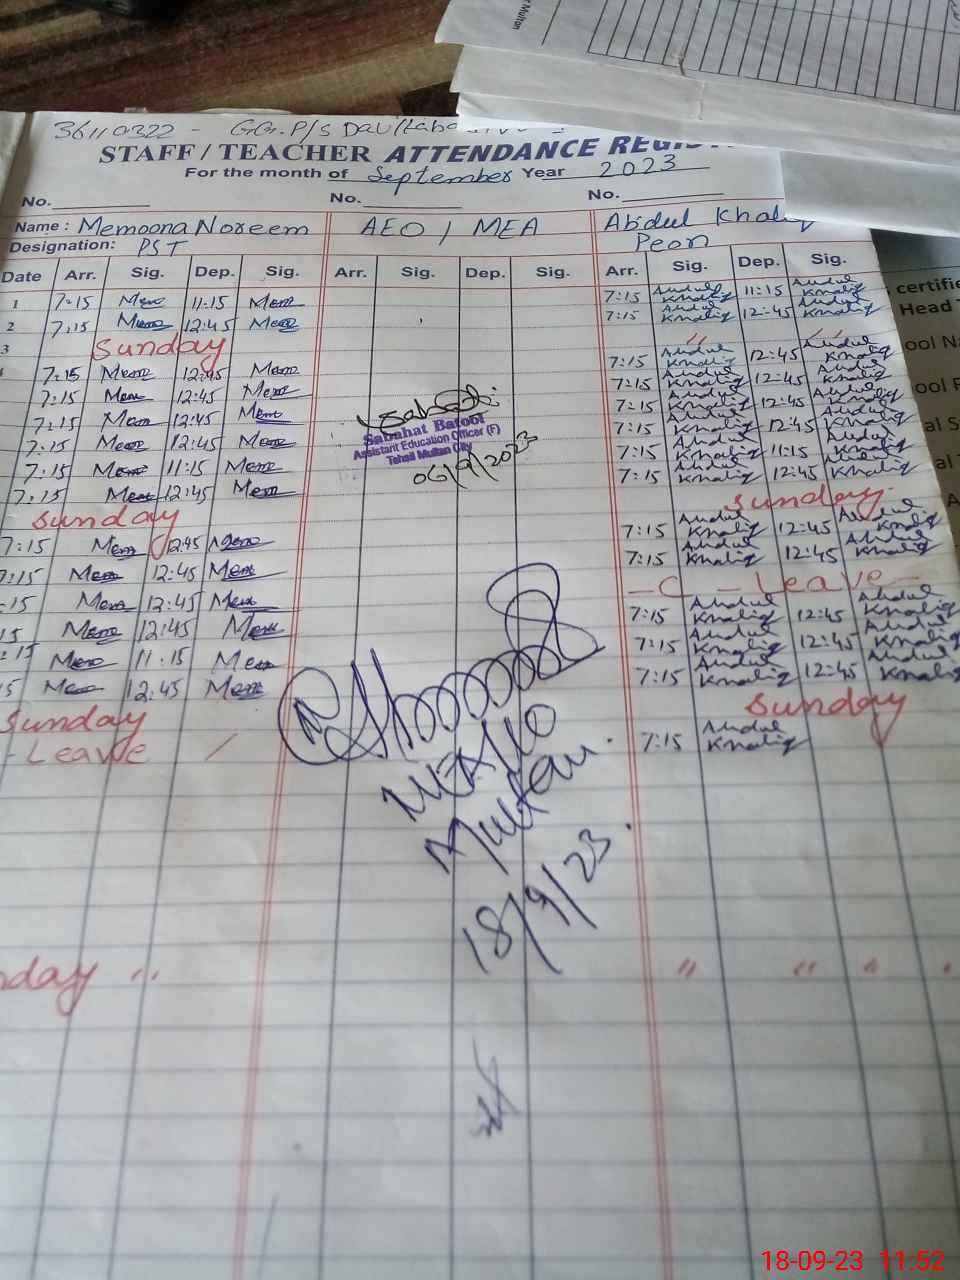 36110322 - G.G.P/S
STAFF / TEACHER ATTENDANCE
For the month of September Year 2023
No. No. No.
Name : Memoona Noreem AEO / MEA Abdul Khaliq
Designation: PST Peon
Date Arr. Sig. Dep. Sig. Arr. Sig. Dep. Sig. Arr. Sig. Dep. Sig.
1 7:15 Mem 11:15 Mem 7:15 Abdul Khaliq 11:15 Abdul Khaliq
2 7:15 Mem 12:45 Mem 7:15 Abdul Khaliq 12:45 Abdul Khaliq
3 Sunday " " "
7:15 Mem 12:45 Mem 7:15 Abdul Khaliq 12:45 Abdul Khaliq
7:15 Mem 12:45 Mem 7:15 Abdul Khaliq 12:45 Abdul Khaliq
7:15 Mem 12:45 Mem 7:15 Abdul Khaliq 12:45 Abdul Khaliq
7:15 Mem 12:45 Mem 7:15 Abdul Khaliq 12:45 Abdul Khaliq
7:15 Mem 11:15 Mem 7:15 Abdul Khaliq 11:15 Abdul Khaliq
7:15 Mem 12:45 Mem 7:15 Abdul Khaliq 12:45 Abdul Khaliq
Sabahat Batool
Assistant Education Officer (F)
Tehsil Multan City
06/9/2023
Sunday Sunday
7:15 Mem 12:45 Mem 7:15 Abdul Khaliq 12:45 Abdul Khaliq
7:15 Mem 12:45 Mem 7:15 Abdul Khaliq 12:45 Abdul Khaliq
:15 Mem 12:45 Mem - C - Leave -
15 Mem 12:45 Mem 7:15 Abdul Khaliq 12:45 Abdul Khaliq
:15 Mem 11:15 Mem 7:15 Abdul Khaliq 12:45 Abdul Khaliq
15 Mem 12:45 Mem 7:15 Abdul Khaliq 12:45 Abdul Khaliq
Sunday Sunday
- Leave / 7:15 Abdul Khaliq
Multan
18/9/23
nday " " " " "
certifie
Head
18-09-23 11:52